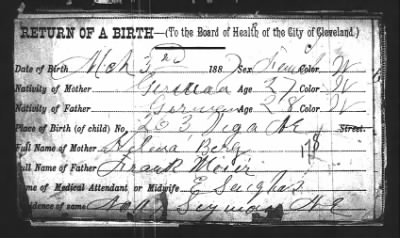 RETURN OF A BIRTH—(To the Board of Health of the City of Cleveland.)
Date of Birth Mch 3rd 1887 Sex Female Color W
Nativity of Mother German Age 27 Color W
Nativity of Father German Age 28 Color W
Place of Birth (of child) No. 263 Street.
Full Name of Mother Helena Berg
Full Name of Father Frank Moser
Name of Medical Attendant or Midwife E
Residence of same Seymour